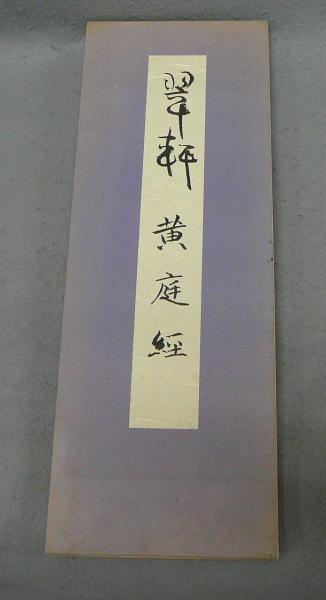 翠軒 黄庭經